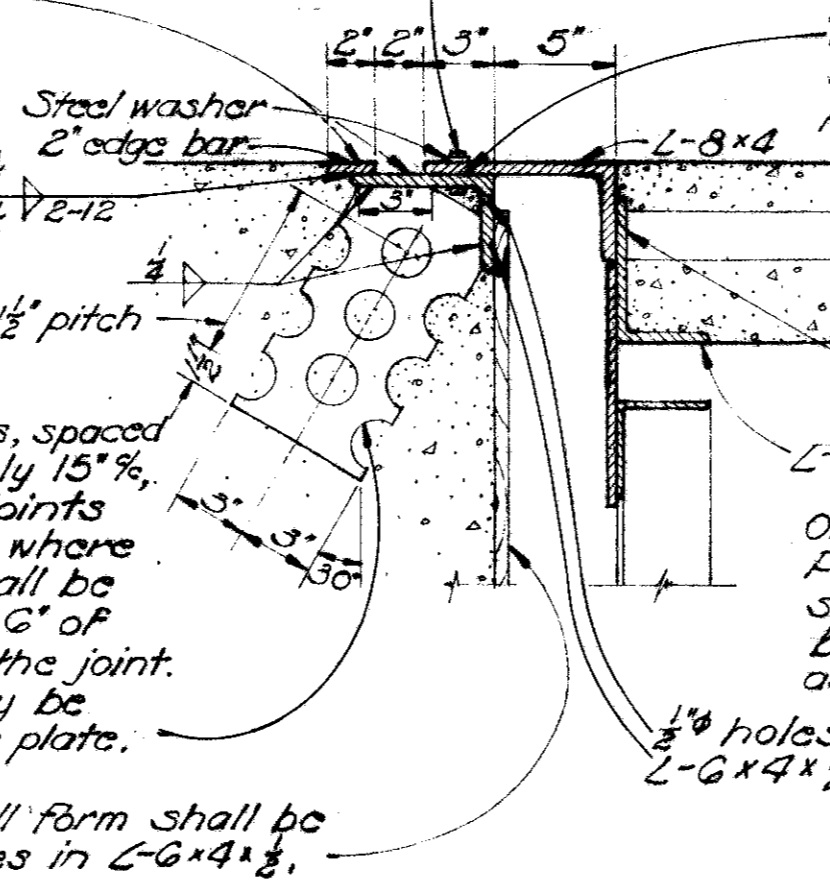 2" 2" 3" 5"
Steel washer
2" edge bar
L-8×4
2-12
3"
1/4
1/2" pitch
spaced
15" %,
where
be
6" of
the joint.
be
plate.
3"
3"
30°
1/2"ϕ holes
L-6×4×
form shall be
in L-6×4×1/2.